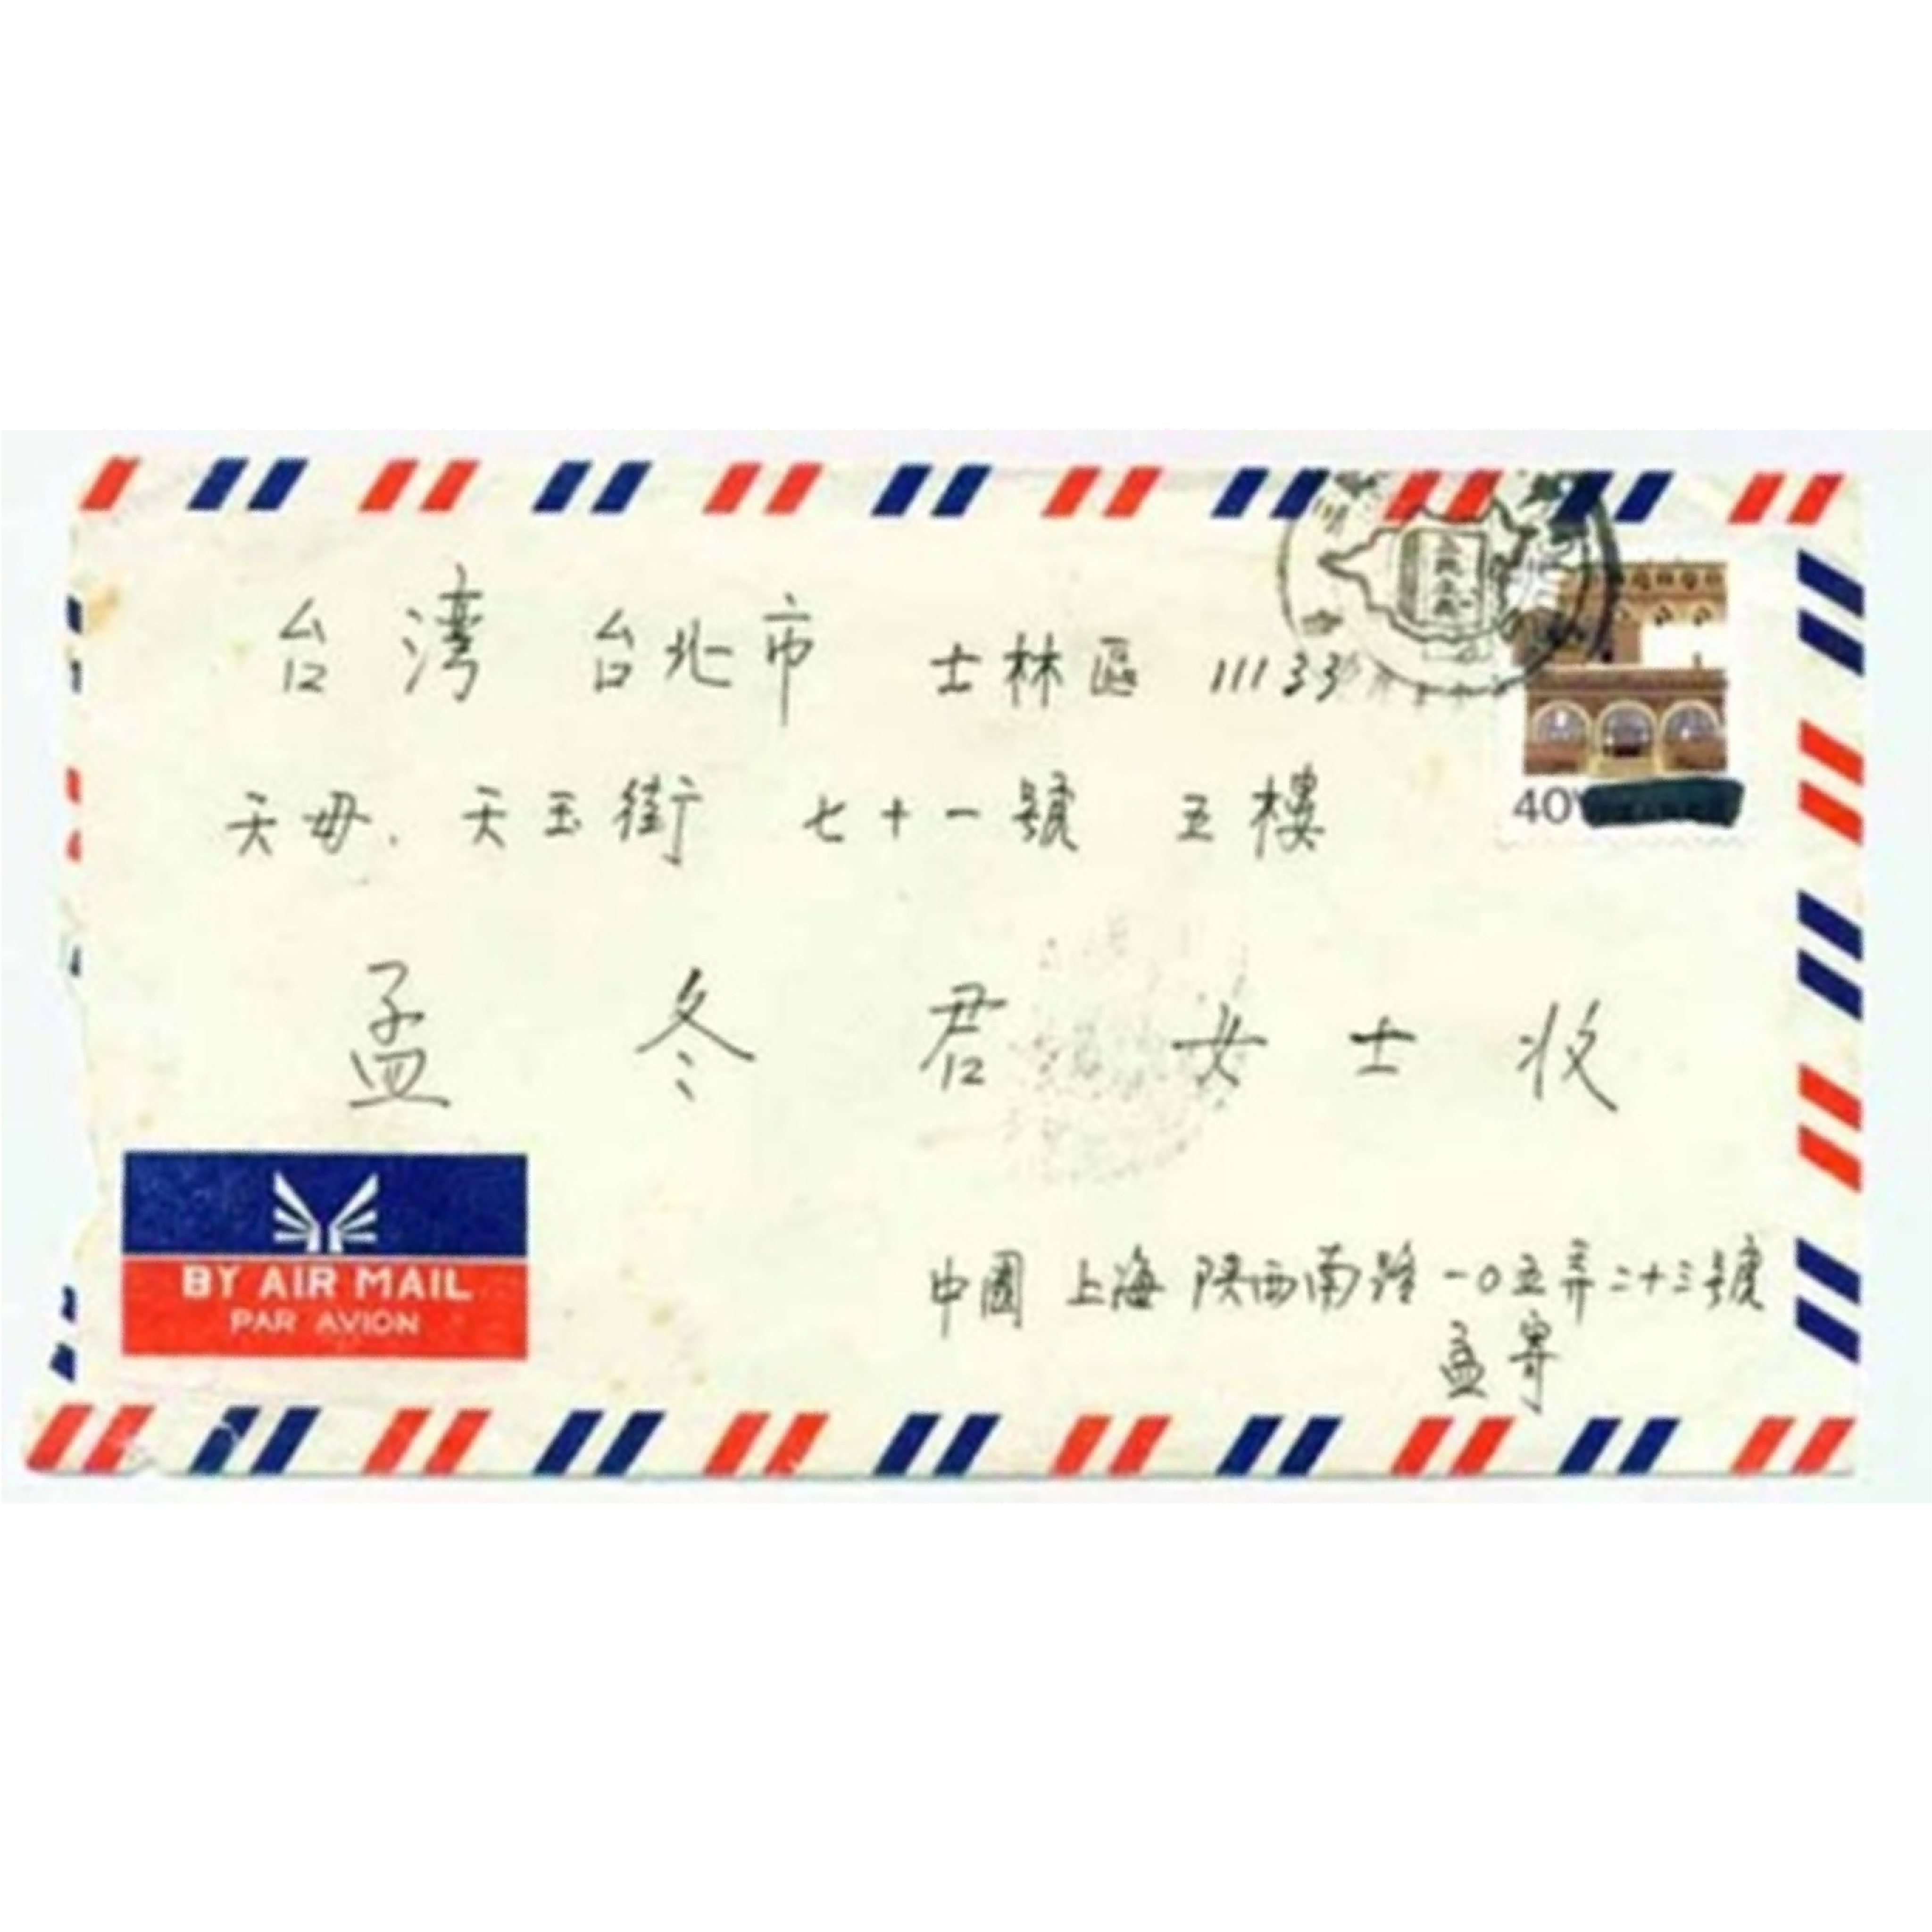 台湾 台北市 士林區 11133
天母. 天玉街 七十一號 五樓
孟冬君女士收
40
BY AIR MAIL
PAR AVION
中國 上海 陕西南路一0五弄二十三號
孟寄